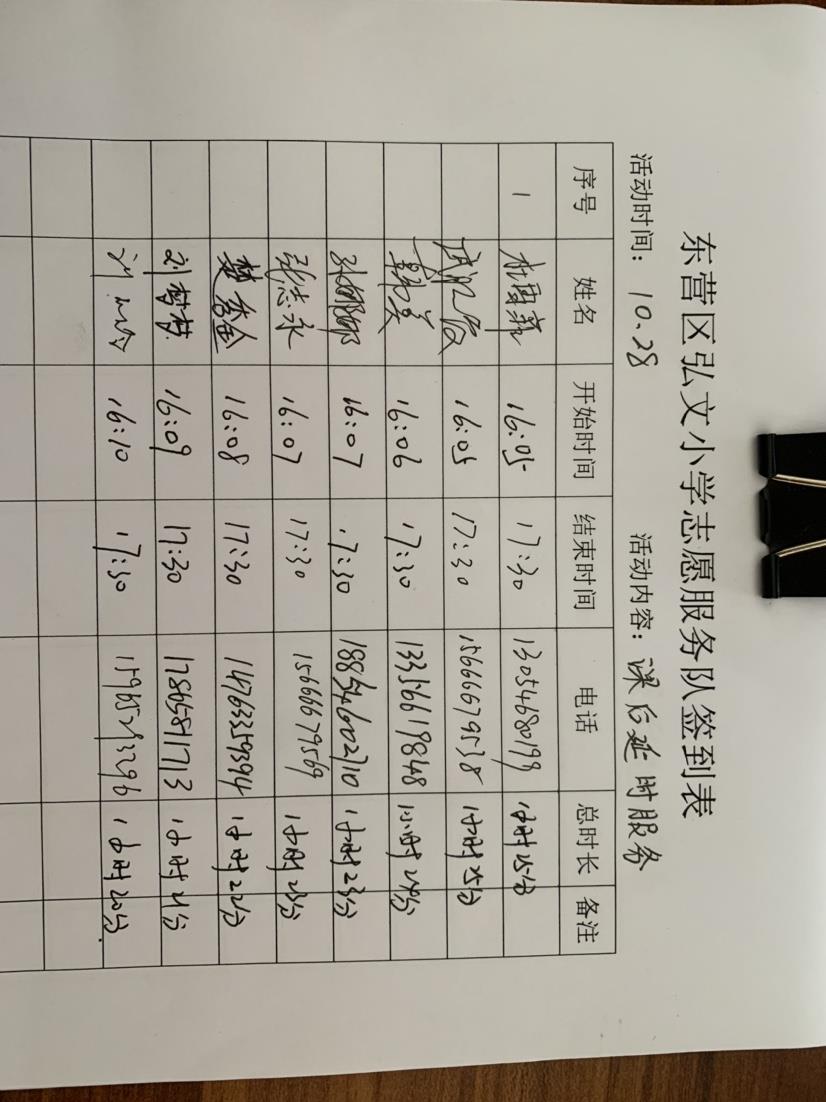 东营区弘文小学志愿服务队签到表
活动时间: 10.28 活动内容: 课后延时服务
序号 姓名 开始时间 结束时间 电话 总时长 备注
1 16:05 17:30 13054680199 1小时25分
16:05 17:30 15666679538 1小时25分
韩美 16:06 17:30 13356619848 1小时24分
孙娜娜 16:07 17:30 18854600210 1小时23分
张志永 16:07 17:30 15666679569 1小时23分
樊秀金 16:08 17:30 14763359394 1小时22分
刘梦梦 16:09 17:30 17865871713 1小时21分
刘 16:10 17:30 15965293296 1小时20分